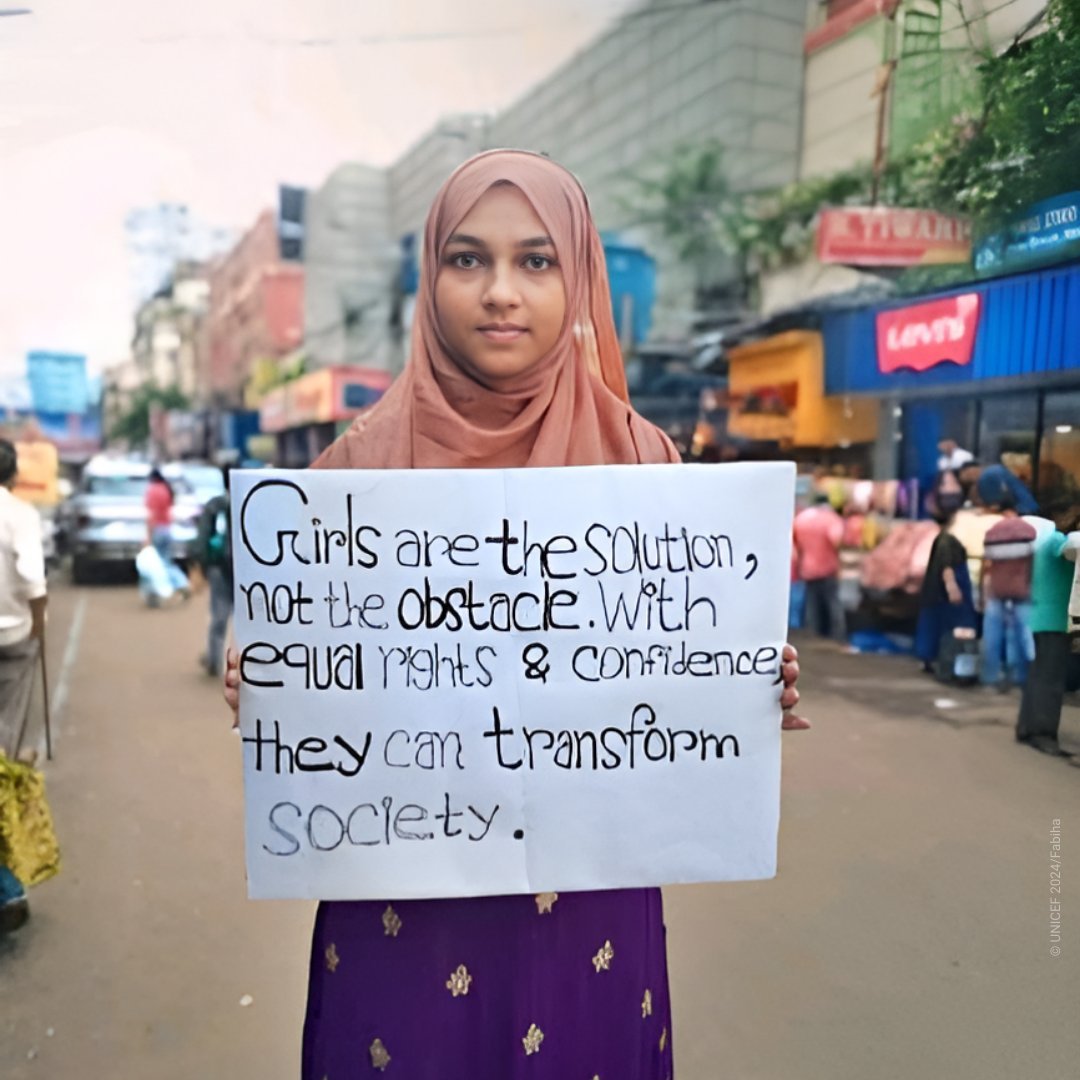 Girls are the solution,
not the obstacle. With
equal rights & confidence,
they can transform
society.
LEVI'S
© UNICEF 2024/Fabiha